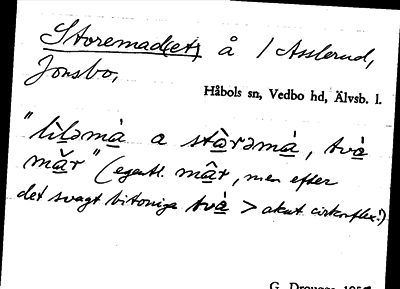 Storemad(et) å / Asslerud,
Jonsbo,
Håbols sn, Vedbo hd, Älvsb. l.
"lìḷəmà̱ a stà̱rəmá̱, två̱̀
mă̱r" (egentl. mâ̱r, men efter
det svagt bitoniga två̱̀ > akut cirkumflex!)
G. Drougge 195